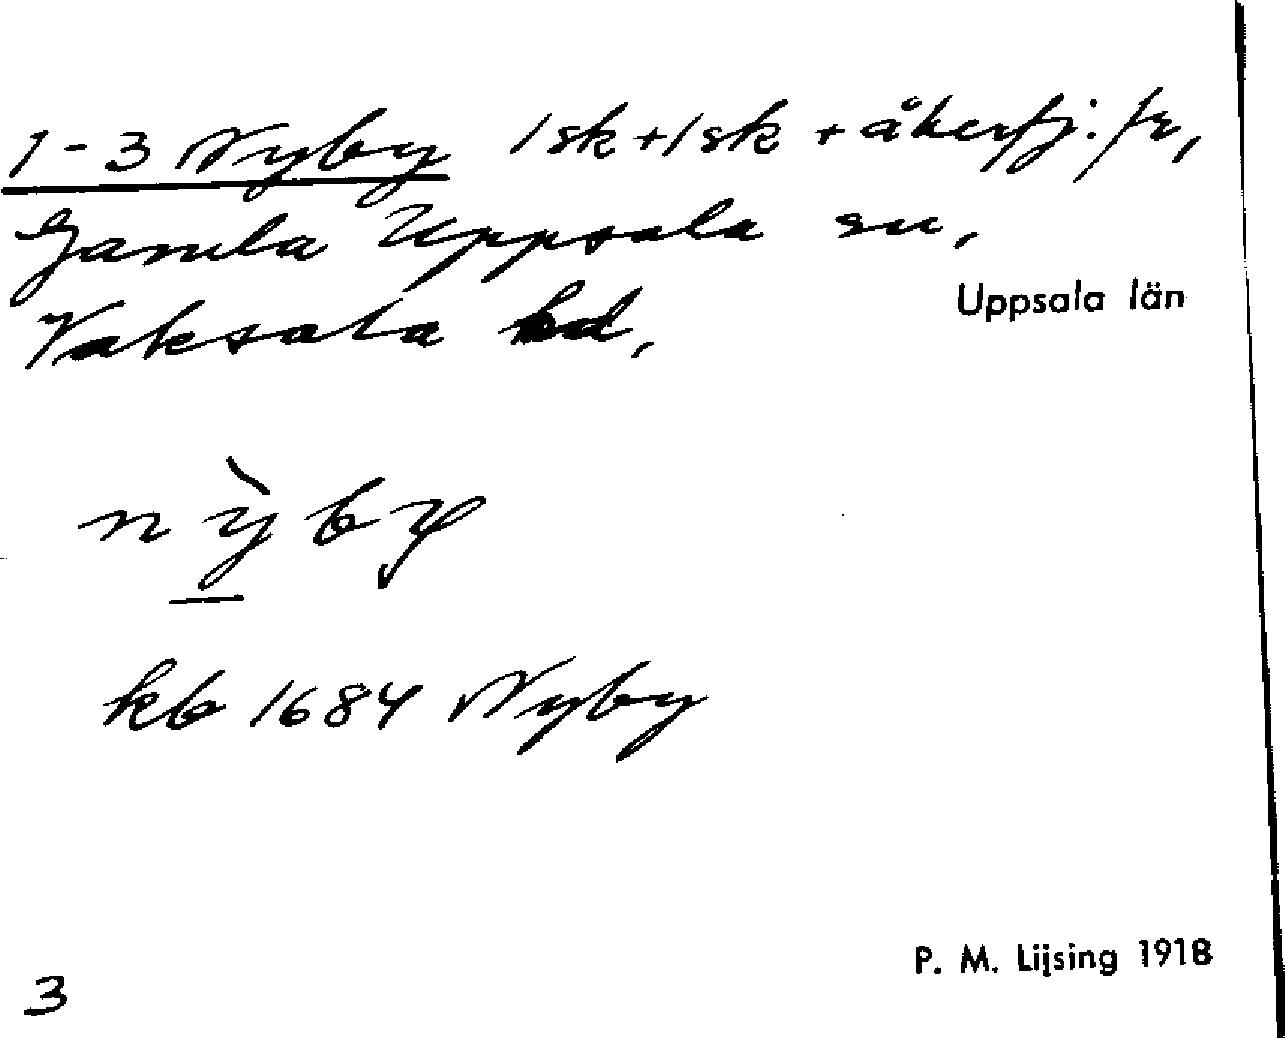 1-3 Nyby 1 sk + 1 sk + åkerfj: fr,
Gamla Uppsala sn,
Vaksala hd,
Uppsala län
nỳby
kb 1684 Nyby
P. M. Lijsing 1918
3